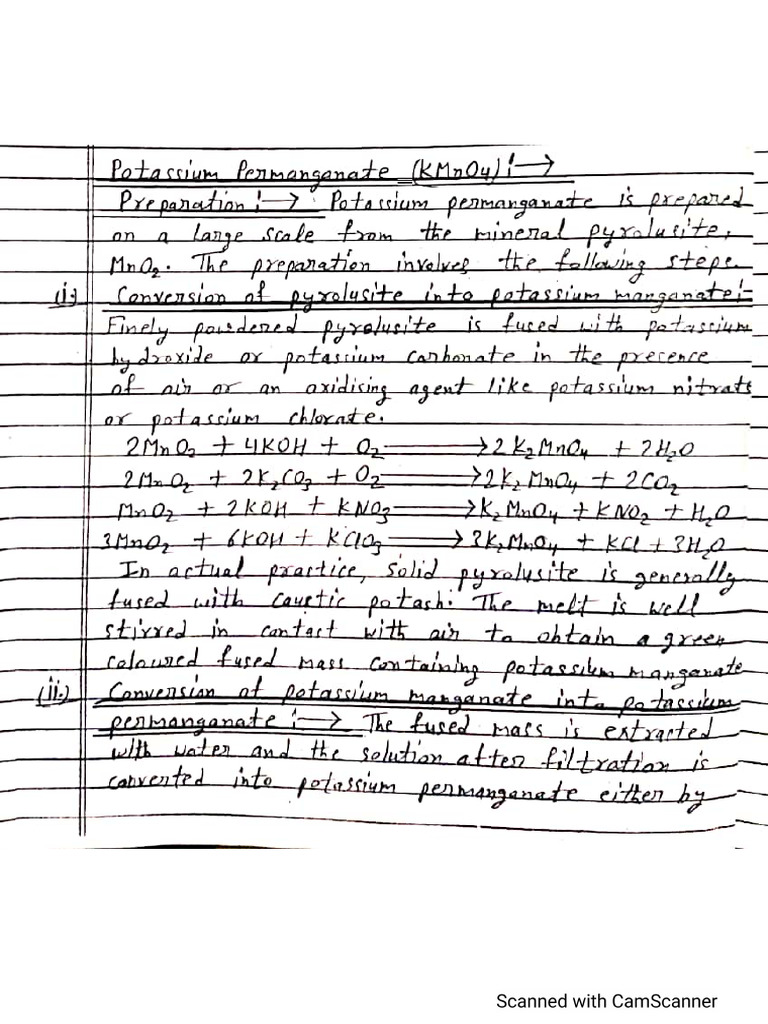 Potassium Permanganate (KMnO4) :→
Preparation :→ Potassium permanganate is prepared
on a large scale from the mineral pyrolusite,
MnO2. The preparation involves the following steps.
(i) Conversion of pyrolusite into potassium manganate:-
Finely powdered pyrolusite is fused with potassium
hydroxide or potassium carbonate in the presence
of air or an oxidising agent like potassium nitrate
or potassium chlorate.
2MnO2 + 4KOH + O2 → 2K2MnO4 + 2H2O
2MnO2 + 2K2CO3 + O2 → 2K2MnO4 + 2CO2
MnO2 + 2KOH + KNO3 → K2MnO4 + KNO2 + H2O
3MnO2 + 6KOH + KClO3 → 3K2MnO4 + KCl + 3H2O
In actual practice, solid pyrolusite is generally
fused with caustic potash. The melt is well
stirred in contact with air to obtain a green
coloured fused mass containing potassium manganate
(ii.) Conversion of potassium manganate into potassium
permanganate :→ The fused mass is extracted
with water and the solution after filtration is
converted into potassium permanganate either by
Scanned with CamScanner